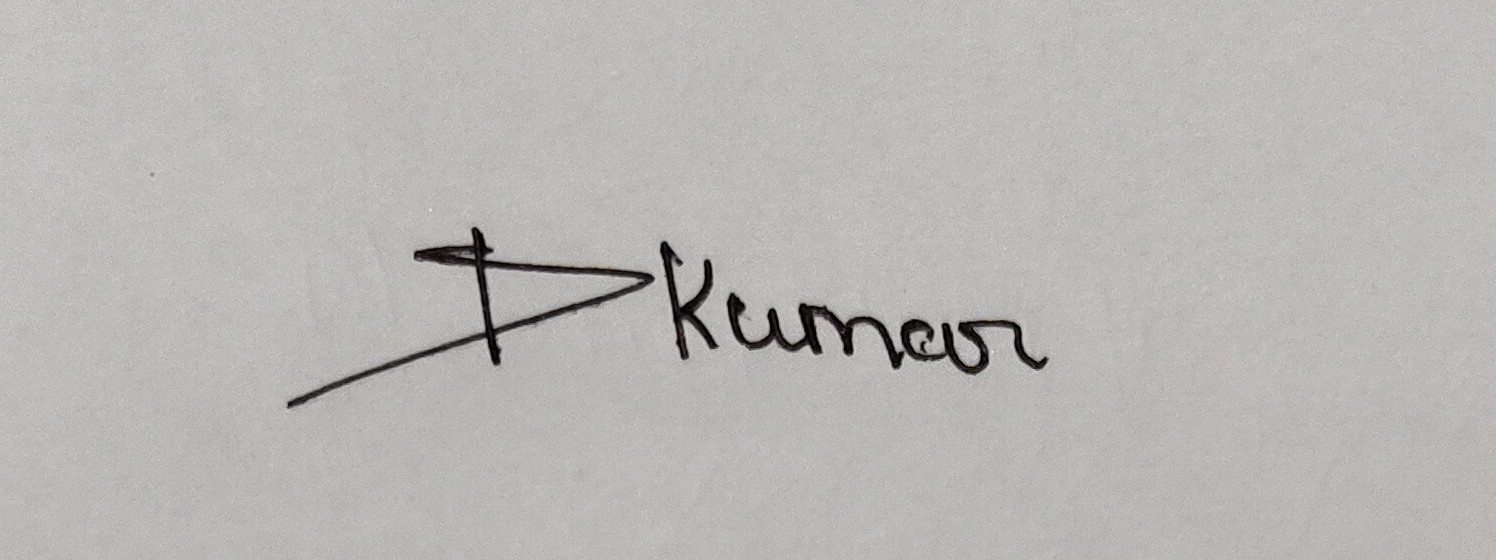 D Kumar